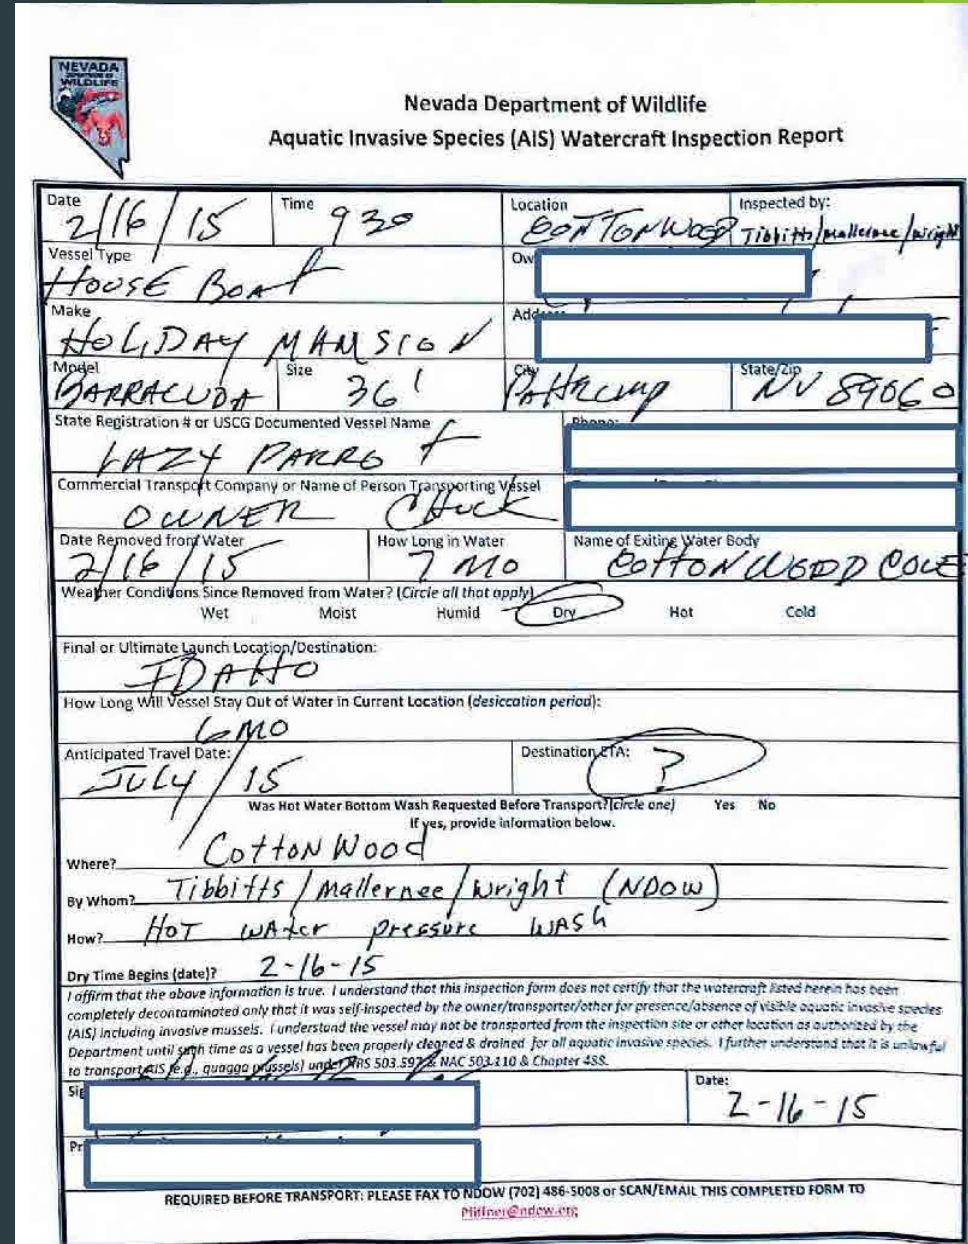 NEVADA
DEPARTMENT OF
WILDLIFE
Nevada Department of Wildlife
Aquatic Invasive Species (AIS) Watercraft Inspection Report
Date 2/16/15 Time 930 Location COTTONWOOD Inspected by: Tibbitts/Mallernee/Wright
Vessel Type HOUSE BOAT Ow
Make HOLIDAY MANSION Address
Model BARRACUDA Size 36' City PAHRUMP State/Zip NV 89060
State Registration # or USCG Documented Vessel Name Phone:
LAZY PARROT
Commercial Transport Company or Name of Person Transporting Vessel
OWNER CHUCK
Date Removed from Water 2/16/15 How Long in Water 7 MO Name of Exiting Water Body COTTONWOOD COVE
Weather Conditions Since Removed from Water? (Circle all that apply)
Wet Moist Humid Dry Hot Cold
Final or Ultimate Launch Location/Destination:
IDAHO
How Long Will Vessel Stay Out of Water in Current Location (desiccation period):
6 MO
Anticipated Travel Date: JULY/15 Destination ETA: ?
Was Hot Water Bottom Wash Requested Before Transport? (circle one) Yes No
If yes, provide information below.
Where? CottonWood
By Whom? Tibbitts/Mallernee/Wright (NDOW)
How? HOT WAter pressure WASh
Dry Time Begins (date)? 2-16-15
I affirm that the above information is true. I understand that this inspection form does not certify that the watercraft listed herein has been
completely decontaminated only that it was self-inspected by the owner/transporter/other for presence/absence of visible aquatic invasive species
(AIS) including invasive mussels. I understand the vessel may not be transported from the inspection site or other location as authorized by the
Department until such time as a vessel has been properly cleaned & drained for all aquatic invasive species. I further understand that it is unlawful
to transport AIS (e.g., quagga mussels) under NRS 503.597 & NAC 503.110 & Chapter 488.
Sig Date: 2-16-15
Pr
REQUIRED BEFORE TRANSPORT: PLEASE FAX TO NDOW (702) 486-5008 or SCAN/EMAIL THIS COMPLETED FORM TO